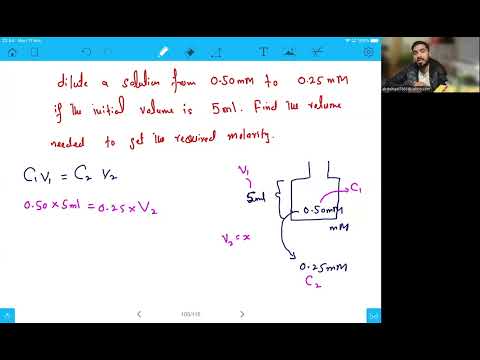 dilute a solution from 0.50mM to 0.25 mM
if the initial volume is 5ml. Find the volume
needed to get the required molarity.
C1V1 = C2 V2
0.50 × 5ml = 0.25 × V2
V1
5ml
C1
0.50mM
mM
V2 = x
0.25mM
C2